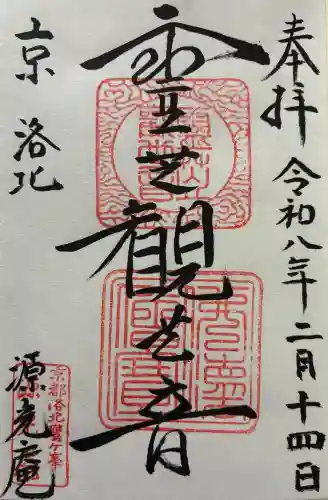 奉拝
令和八年二月十四日
霊芝觀世音
京 洛北
源光庵
京都洛北鷹ケ峯